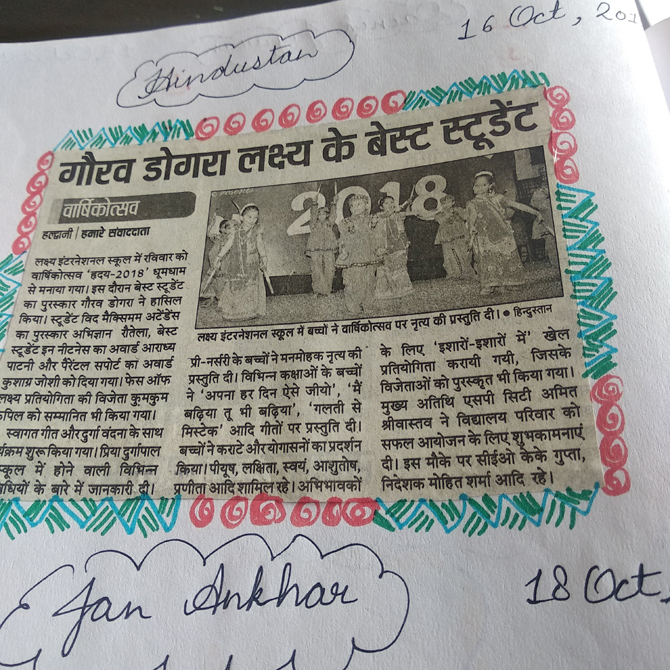 Hindustan
16 Oct, 201
गौरव डोगरा लक्ष्य के बेस्ट स्टूडेंट
वार्षिकोत्सव
हल्द्वानी | हमारे संवाददाता
लक्ष्य इंटरनेशनल स्कूल में रविवार को
वार्षिकोत्सव 'हृदय-2018' धूमधाम
से मनाया गया। इस दौरान बेस्ट स्टूडेंट
का पुरस्कार गौरव डोगरा ने हासिल
किया। स्टूडेंट विद मैक्सिमम अटेंडेंस
का पुरस्कार अभिज्ञान रौतेला, बेस्ट
स्टूडेंट इन नीटनेस का अवार्ड आराध्य
पाटनी और पैरेंटल सपोर्ट का अवार्ड
कुशाग्र जोशी को दिया गया। फेस ऑफ
लक्ष्य प्रतियोगिता की विजेता कुमकुम
को सम्मानित भी किया गया।
स्वागत गीत और दुर्गा वंदना के साथ
शुरू किया गया। प्रिया दुर्गापाल
में होने वाली विभिन्न
के बारे में जानकारी दी।
2018
लक्ष्य इंटरनेशनल स्कूल में बच्चों ने वार्षिकोत्सव पर नृत्य की प्रस्तुति दी। ● हिन्दुस्तान
प्री-नर्सरी के बच्चों ने मनमोहक नृत्य की
प्रस्तुति दी। विभिन्न कक्षाओं के बच्चों
ने 'अपना हर दिन ऐसे जीयो', 'मैं
बढ़िया तू भी बढ़िया', 'गलती से
मिस्टेक' आदि गीतों पर प्रस्तुति दी।
बच्चों ने कराटे और योगासनों का प्रदर्शन
किया। पीयूष, लक्षिता, स्वयं, आशुतोष,
प्रणीता आदि शामिल रहे। अभिभावकों
के लिए 'इशारों-इशारों में' खेल
प्रतियोगिता करायी गयी, जिसके
विजेताओं को पुरस्कृत भी किया गया।
मुख्य अतिथि एसपी सिटी अमित
श्रीवास्तव ने विद्यालय परिवार को
सफल आयोजन के लिए शुभकामनाएं
दी। इस मौके पर सीईओ केके गुप्ता,
निदेशक मोहित शर्मा आदि रहे।
Jan Ankhar
18 Oct,